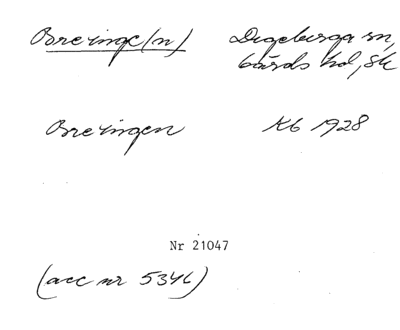 Breinge(n) Degeberga sn,
Gärds hd, Sk
Breingen Kb 1928
Nr 21047
(acc nr 5346)